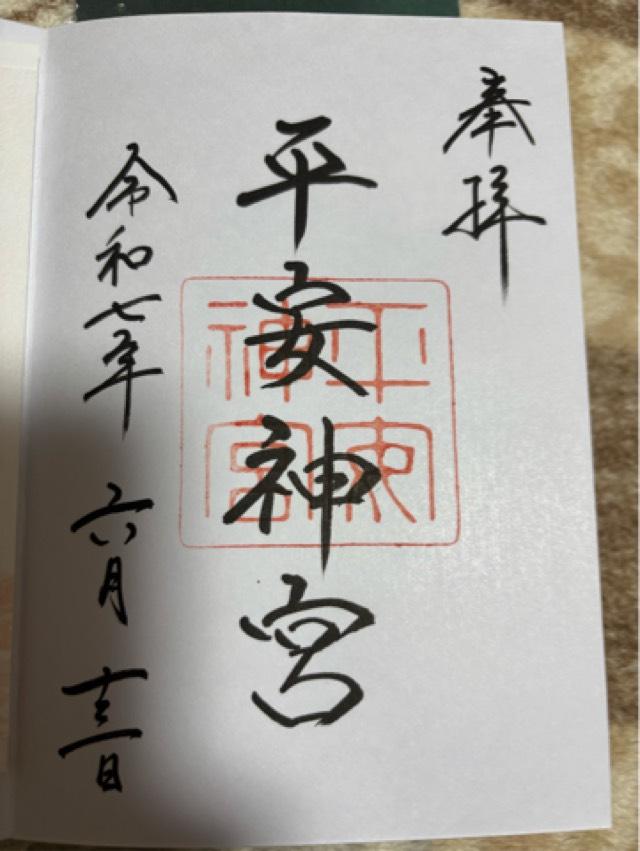 奉拝
平安神宮
平安
神宮
令和七年 六月 十三日